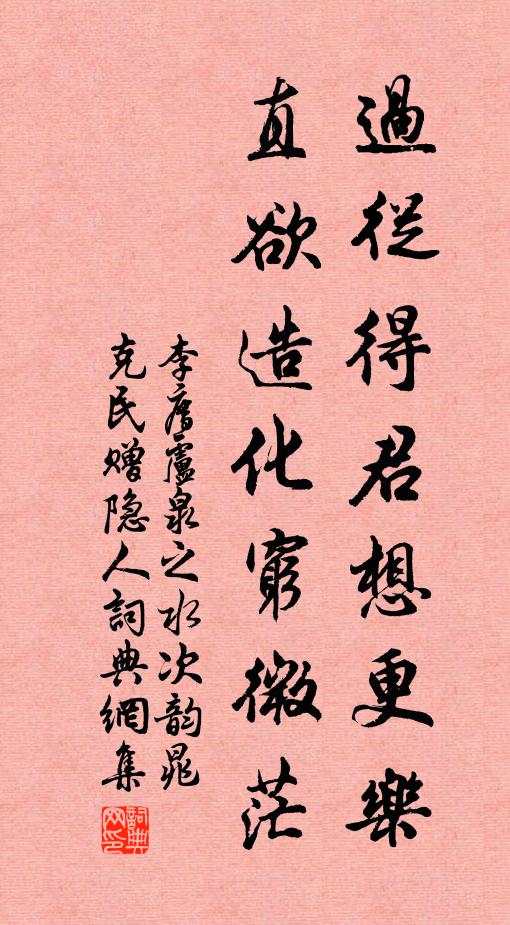 過從得君想更樂
直欲造化窮微茫
李廌廬泉之水次韵晁
克民赠隐人詞典網集
詞典
网印